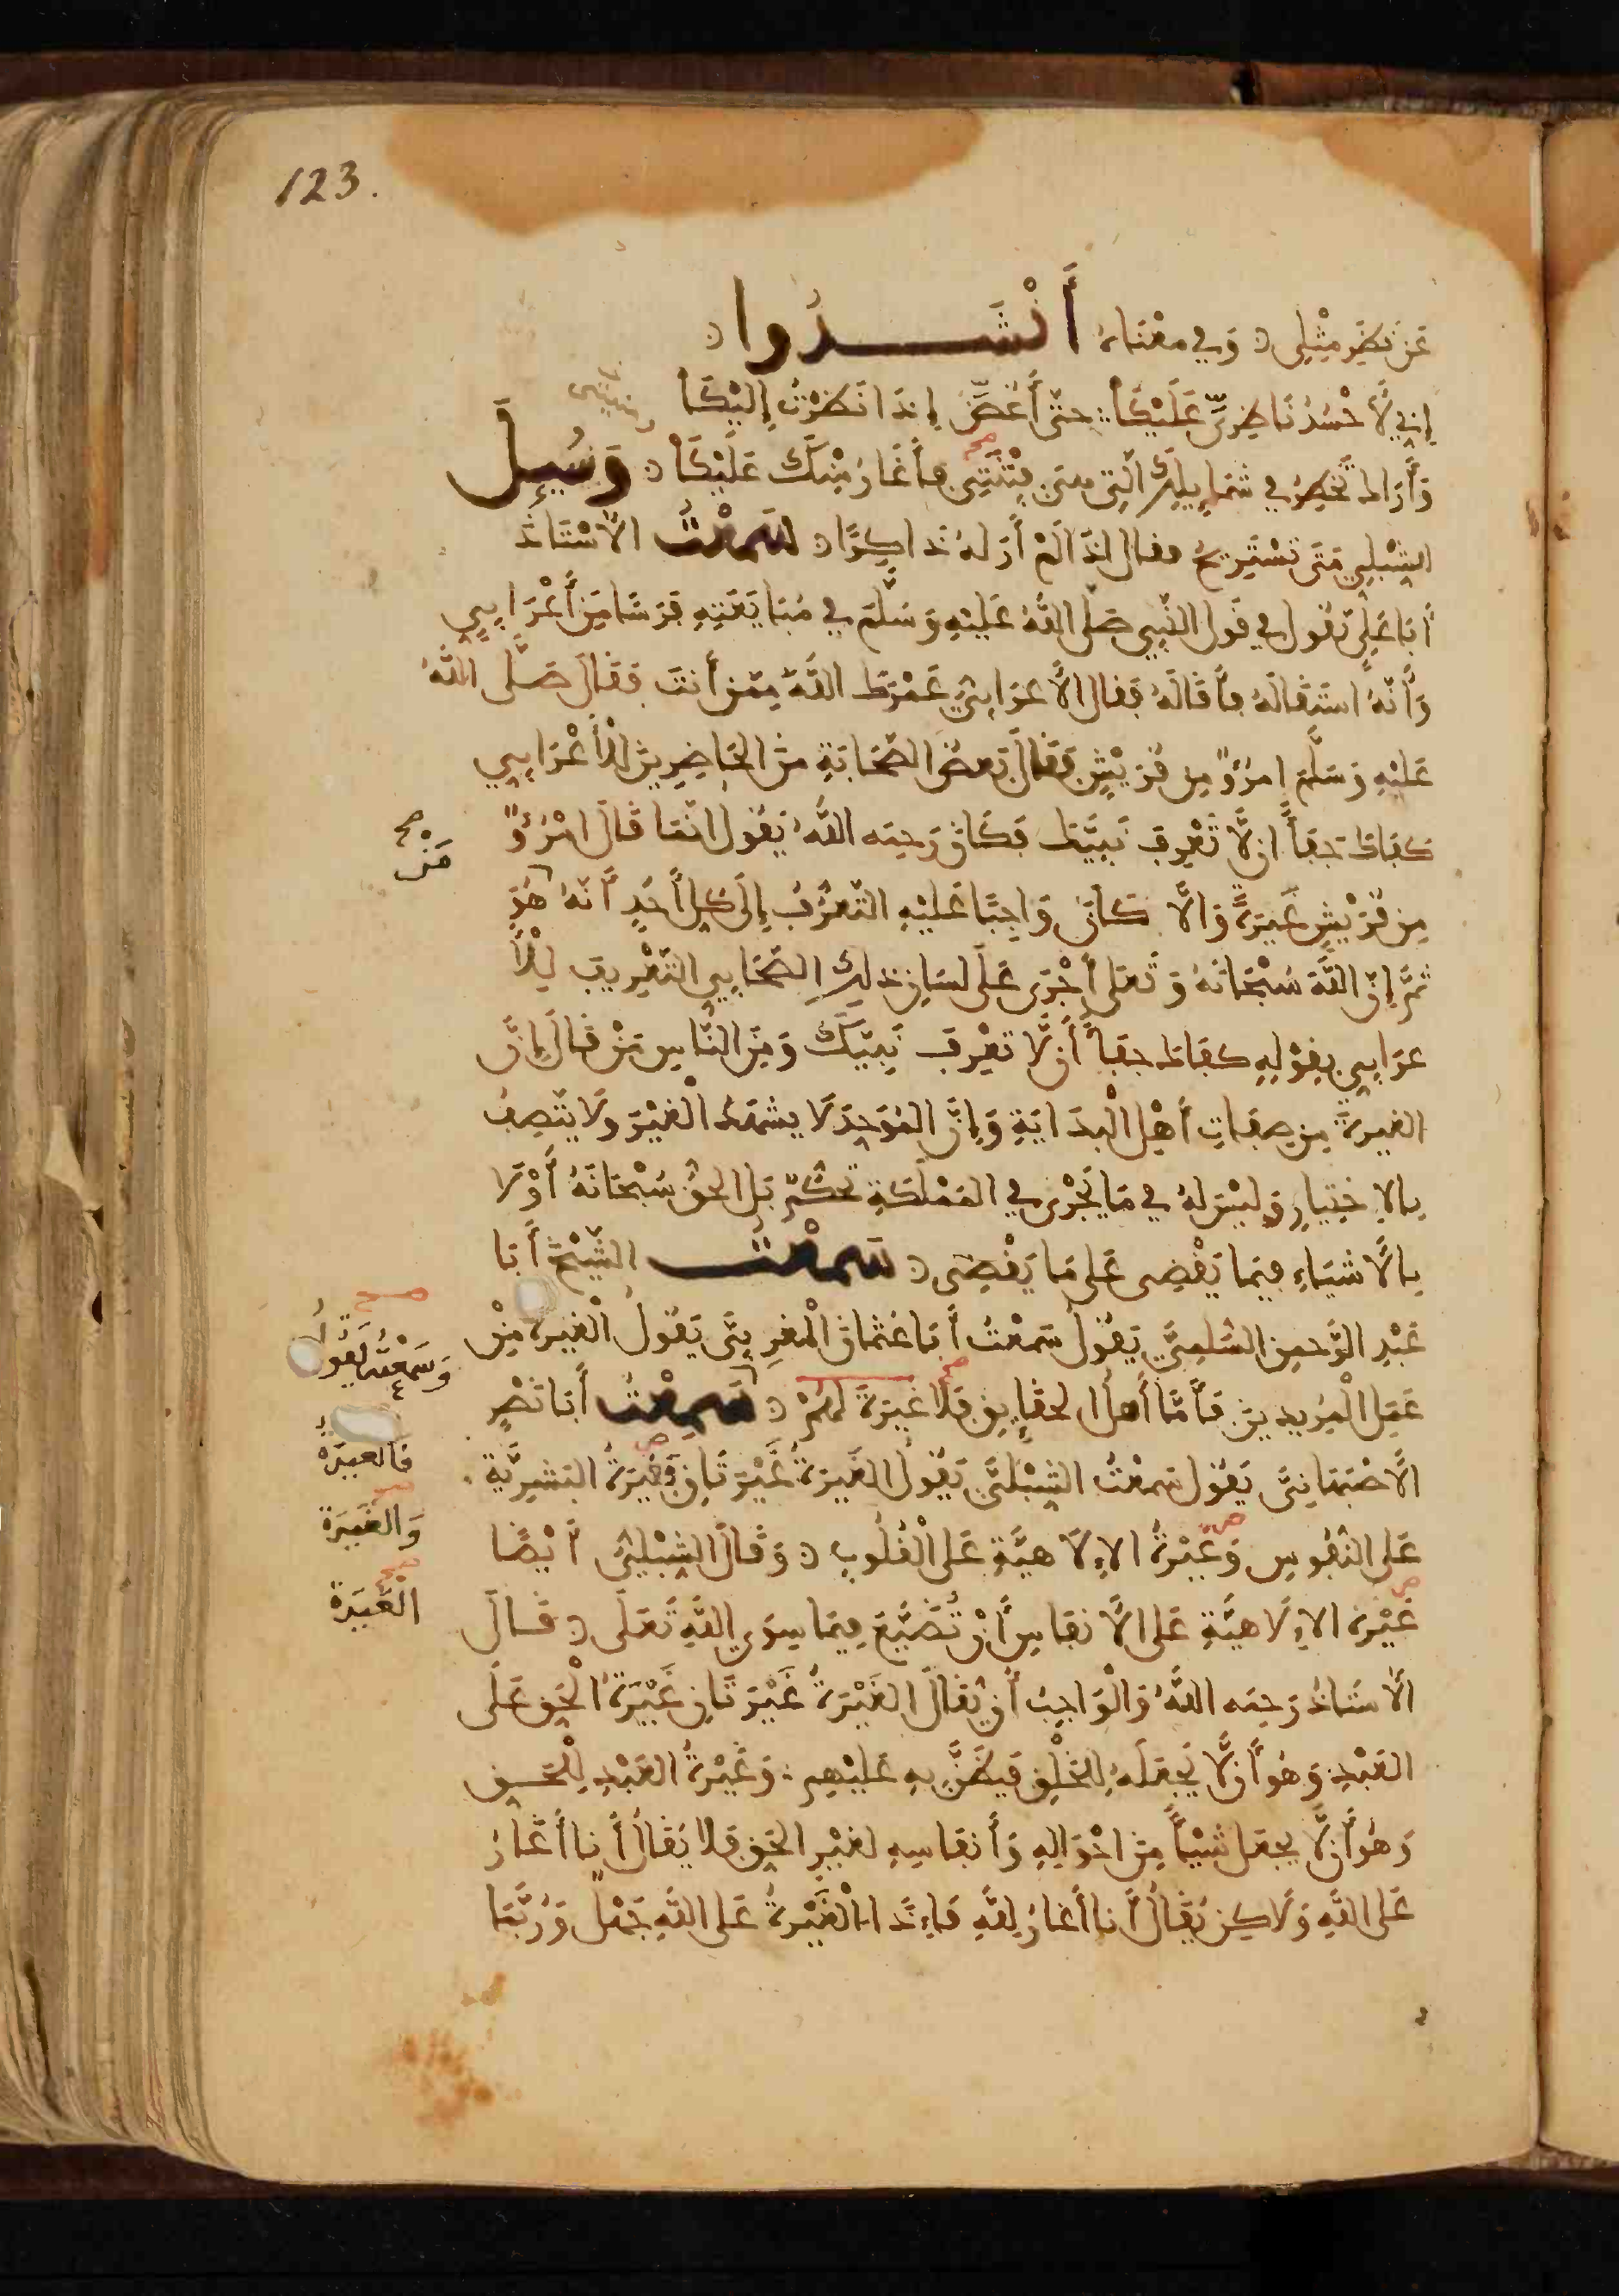 123.
عَن نَظَرِ مِثْلِى وَفِي مَعْنَاهُ أَنْشَدُوا
إِنِّي لَأَحْسُدُ نَاظِرَيَّ عَلَيْكَا حتّى أَغُضَّ إِذَا نَظَرْتُ إِلَيْكَا
وَأَرَاكَ تَخْطِرُ فِي شَمَايِلِكَ الَّتِى هِىَ فِتْنَتِى فَأَغَارُ مِنْكَ عَلَيْكَا وَسُيِلَ
الشِّبْلِي مَتَى تَسْتَرِيحُ فقال إِذَا لَمْ أَرَ لَهُ ذَاكِرًا سَمِعْتُ الأُسْتَاذَ
أَبَا عَلِي يَقُول في قَول النَّبِي صَلَّى اللَّهُ عَلَيْهِ وَسَلَّمَ فِي مُبَايَعَتِهِ فَرَسًا مِن أَعْرَابِيٍ
وَأَنَّهُ اسْتَقَالَهُ فَأَقَالَهُ فَقَال الأَعْرَابِيُّ عَمْرَكَ اللَّهَ مِمَّن أَنتَ فَقَالَ صَلَّى اللَّهُ
عَلَيْهِ وَسَلَّمَ امرُؤٌ مِن قُرَيْشٍ فَقَالَ بَعضُ الصَّحَابَةِ مِنَ الحَاضِرِينَ لِلْأَعْرَابِيِ
كفاكَ جفاً ان لَّا تَعْرِفَ نَبِيَّكَ فَكَانَ رَحِمَه اللَّهُ يَقُول انَّمَا قَالَ امْرُؤٌ
مِن قُرَيْشٍ غَيْرَةً وَالَّا كَانَ وَاجِبًا عَلَيْهِ التَّعَرُّفُ إِلَى كل أَحَدٍ أَنَّهُ هُوَ
مَنْ صح
ثُمَّ إِنَّ اللَّهَ سُبْحَانَهُ وَتَعَلى أَجْرَى عَلَى لسَانِ ذَلِكَ الصَّحَابِيِ التَّعْرِيفَ لِلْأَ
عرَابِيِ بِقَوْلِهِ كفاكَ جفاً أَن لَّا تَعْرِفَ نَبِيَّكَ وَمِنَ النَّاسِ مَنْ قَالَ إِنَّ
الغيرةَ مِن صِفَاتِ أَهْلِ الْبِدَايَةِ وَإِنَّ المُوَحِّدَ لَا يشهَدُ الْغَيْرَ ولَا يَتَّصِفُ
بِالِاخْتِيَارِ وَلَيْسَ لهُ فِي مَا يَجْرِى فِي المَمْلَكَةِ تَحَكُّمٌ بَلِ الحقُّ سُبْحَانَهُ أَوْلَا
بِالأَشيَاءِ فِيمَا يَقْضِى عَلى مَا يَقْضِى سَمِعْتُ الشَّيْخَ أَبَا
عَبْدِ الرَّحمنِ السُّلَمِيَّ يَقُولُ سَمِعْتُ أَبَا عُثْمَانَ الْمغرِبِيَّ يَقُولُ الْغَيرَةُ مِنْ
وَسَمِعْتُهُ يَقُولُ صح
عَمَلِ الْمُرِيدِينَ فَأَمَّا أَهلُ الحقَايِقِ فَلَا غَيْرَةَ لَهُمْ سَمِعْتُ أَبَا نَصْرٍ
الأَصْبَهَانِيَّ يَقُولُ سَمِعْتُ الشِّبْلِيَّ يَقُولُ الغَيْرَةُ غَيْرَتَانِ فَغَيْرَةُ البَشَرِيَّةِ
فَالْغَيْرَةُ
عَلَى النُّفُوسِ وَغَيْرَةُ الإِلَاهِيَّةِ عَلَى الْقُلُوبِ وَقَالَ الشِّبْلِيُّ أَيْضًا
وَالغَيْرَةُ
غَيْرَةُ الإِلَاهِيَّةِ عَلَى الأَنفَاسِ أَنْ تُضَيَّعَ فِيمَا سِوَى اللَّهِ تَعَلَى قَالَ
الْغَيْرَةُ
الأُستَاذُ رَحِمَه اللَّهُ وَالْوَاجِبُ أَن يُقَالَ الغَيْرَةُ غَيْرَتَانِ غَيْرَةُ الْحَقِ عَلَى
العَبْدِ وَهُوَ أَن لَّا يَجْعَلَهُ لِلخَلْقِ فَيَضَنُّ بِهِ عَلَيْهِمْ وَغَيْرَةُ العَبْدِ لِلْحَقِ
وَهُوَ أَن لَّا يجعل شَيْأً مِنْ احْوَالِهِ وَأَنفَاسِهِ لغَيْرِ الحَقِ فَلا يُقَالُ أَنا أَغَارُ
عَلَى اللَّهِ وَلَاكِن يُقَالُ أَنا أَغَارُ لِلَّهِ فَاءِذًا الْغَيْرَةُ عَلى اللَّهِ جَهْلٌ وَرُبَّمَا